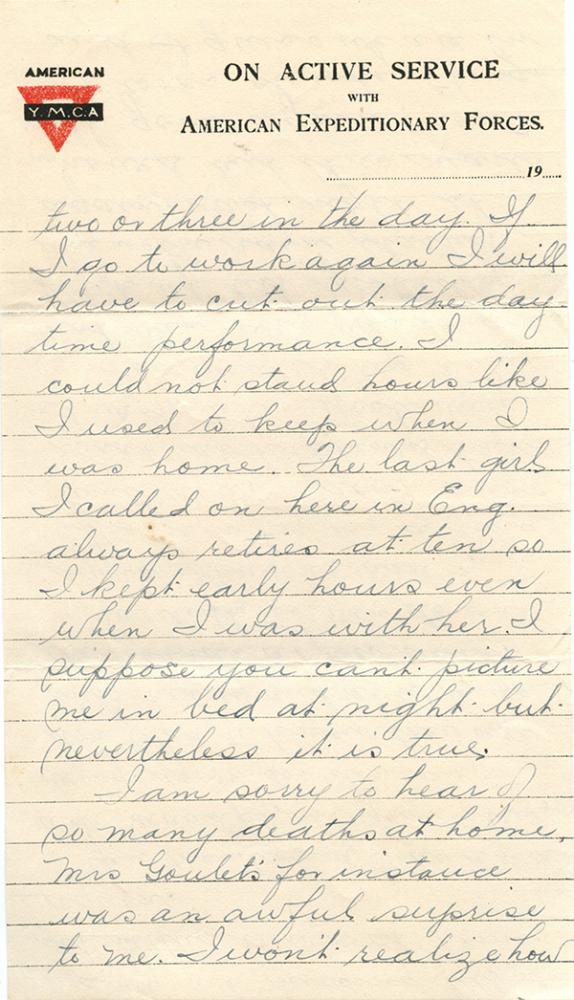 AMERICAN
Y.M.C.A
ON ACTIVE SERVICE
WITH
AMERICAN EXPEDITIONARY FORCES.
19
two or three in the day. If
I go to work again I will
have to cut out the day
time performance. I
could not stand hours like
I used to keep when I
was home. The last girl
I called on here in Eng.
always retires at ten so
I kept early hours even
when I was with her. I
suppose you can't picture
me in bed at night but
nevertheless it is true.
I am sorry to hear of
so many deaths at home,
Mrs Goulet's for instance
was an awful surprise
to me. I won't realize how